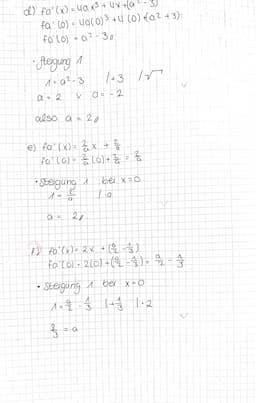 d) fa'(x) = 4ax³ + 4x + (a² - 3)
fa'(0) = 4a(0)³ + 4(0) + (a² + 3)
fa'(0) = a² - 3
• Steigung 1
1 = a² - 3 | +3 | √
a = 2 v a = -2
also a = 2
e) fa'(x) = 2/a x + 2/a
fa'(0) = 2/a (0) + 2/a = 2/a
• Steigung 1 bei x=0
1 = 2/a | a
a = 2
f) fa'(x) = 2x + (a/2 - 1/3)
fa'(0) = 2(0) + (a/2 - 1/3) = a/2 - 1/3
• Steigung 1 bei x=0
1 = a/2 - 1/3 | + 1/3 | · 2
8/3 = a